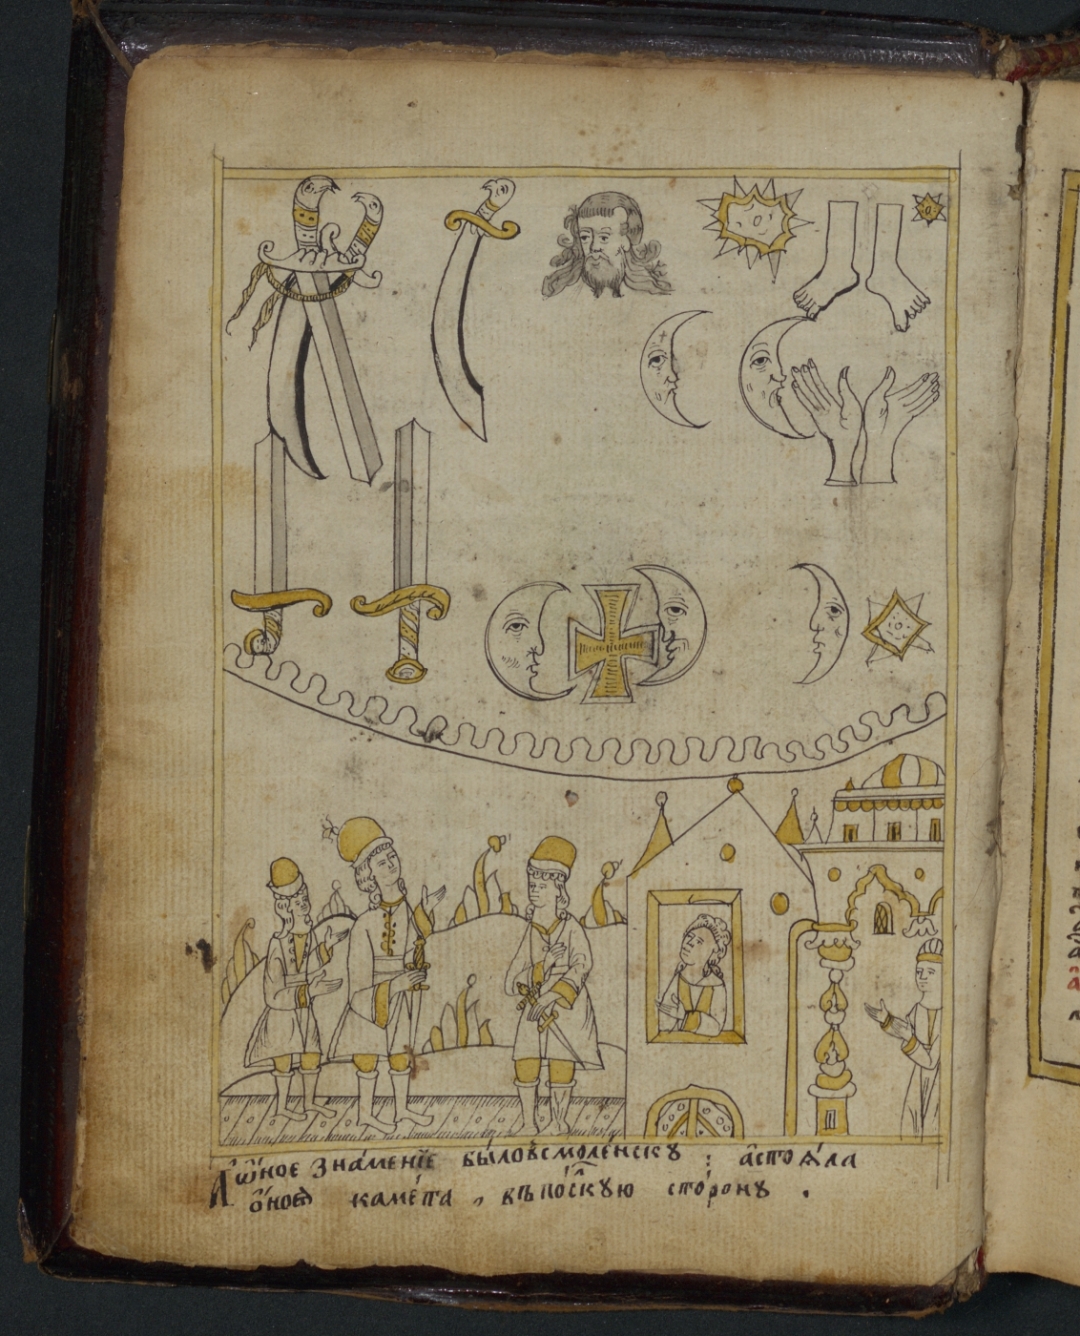 А ѻ҆́ное зна́менїе бы́ло в смоле́нскꙋ : а҆ стоѧ́ла
ѻ҆́ноѧ каме́та , въ по́скую сто́ронꙋ .